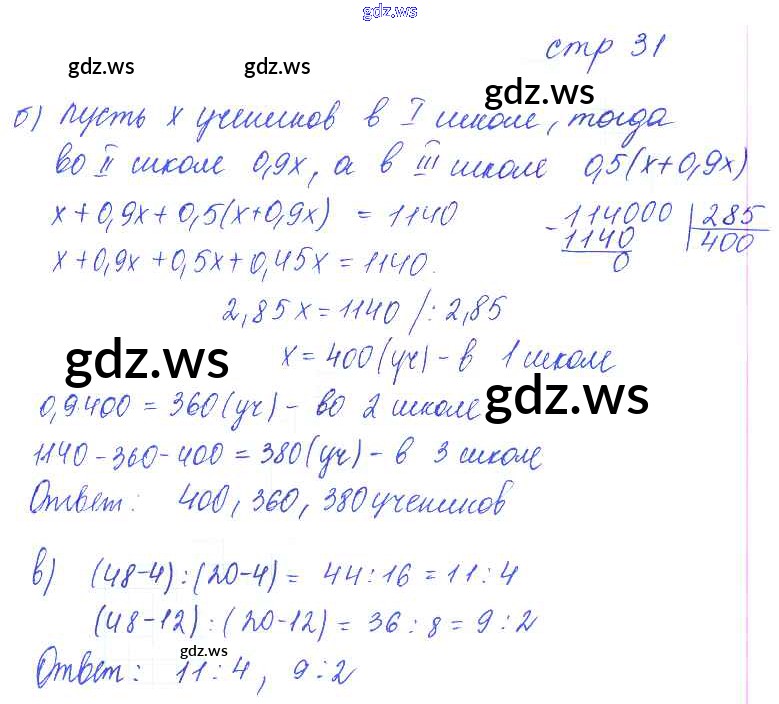 gdz.ws
стр 31
gdz.ws gdz.ws
gdz.ws
б) пусть х учеников в I школе, тогда
во II школе 0,9х, а в III школе 0,5(х+0,9х)
х+0,9х+0,5(х+0,9х) = 1140
- 114000 | 285
1140 400
0
х+0,9х+0,5х+0,45х=1140.
2,85х=1140 /:2,85
х=400(уч)-в 1 школе
gdz.ws
gdz.ws
0,9400 = 360(уч) - во 2 школе
1140-360-400=380(уч)-в 3 школе
Ответ: 400, 360, 380 учеников
в) (48-4):(20-4)= 44:16=11:4
(48-12):(20-12)=36:8=9:2
gdz.ws
Ответ: 11:4, 9:2